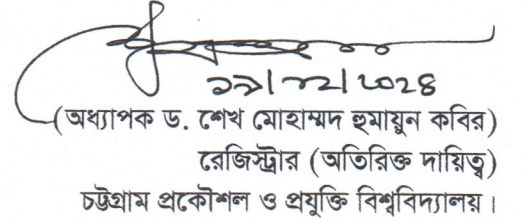 ১৯/১২/২০২৪
(অধ্যাপক ড. শেখ মোহাম্মদ হুমায়ুন কবির)
রেজিস্ট্রার (অতিরিক্ত দায়িত্ব)
চট্টগ্রাম প্রকৌশল ও প্রযুক্তি বিশ্ববিদ্যালয়।